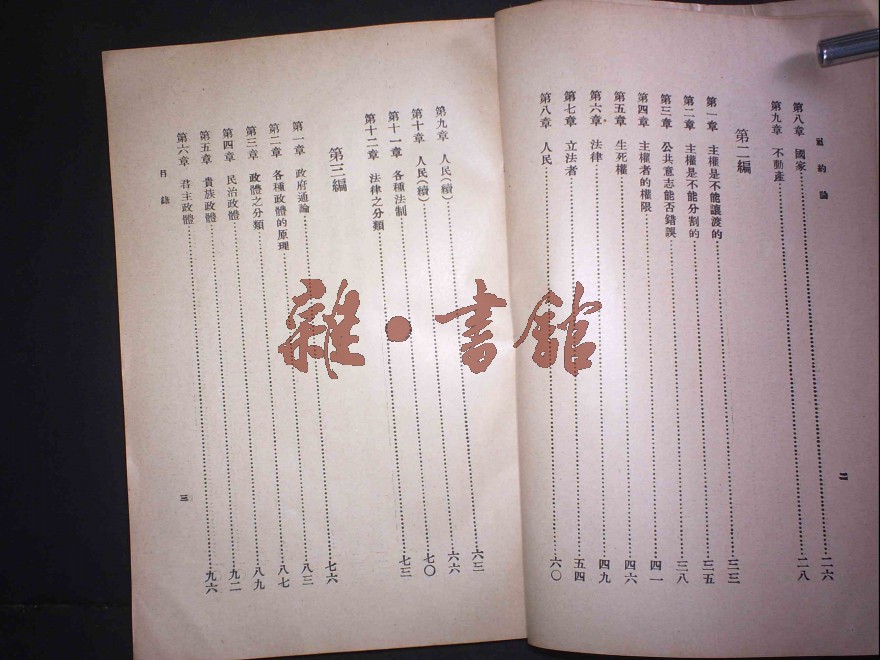 民約論
二
第八章 國家………二六
第九章 不動產………二八
第二編
第一章 主權是不能讓渡的………三三
第二章 主權是不能分割的………三五
第三章 公共意志能否錯誤………三八
第四章 主權者的權限………四一
第五章 生死權………四六
第六章 法律………四九
第七章 立法者………五四
第八章 人民………六〇
第九章 人民(續)………六三
第十章 人民(續)………六六
第十一章 各種法制………七〇
第十二章 法律之分類………七三
第三編
第一章 政府通論………七六
第二章 各種政體的原理………八三
第三章 政體之分類………八七
第四章 民治政體………八九
第五章 貴族政體………九二
第六章 君主政體………九六
目錄
三
雜·書館